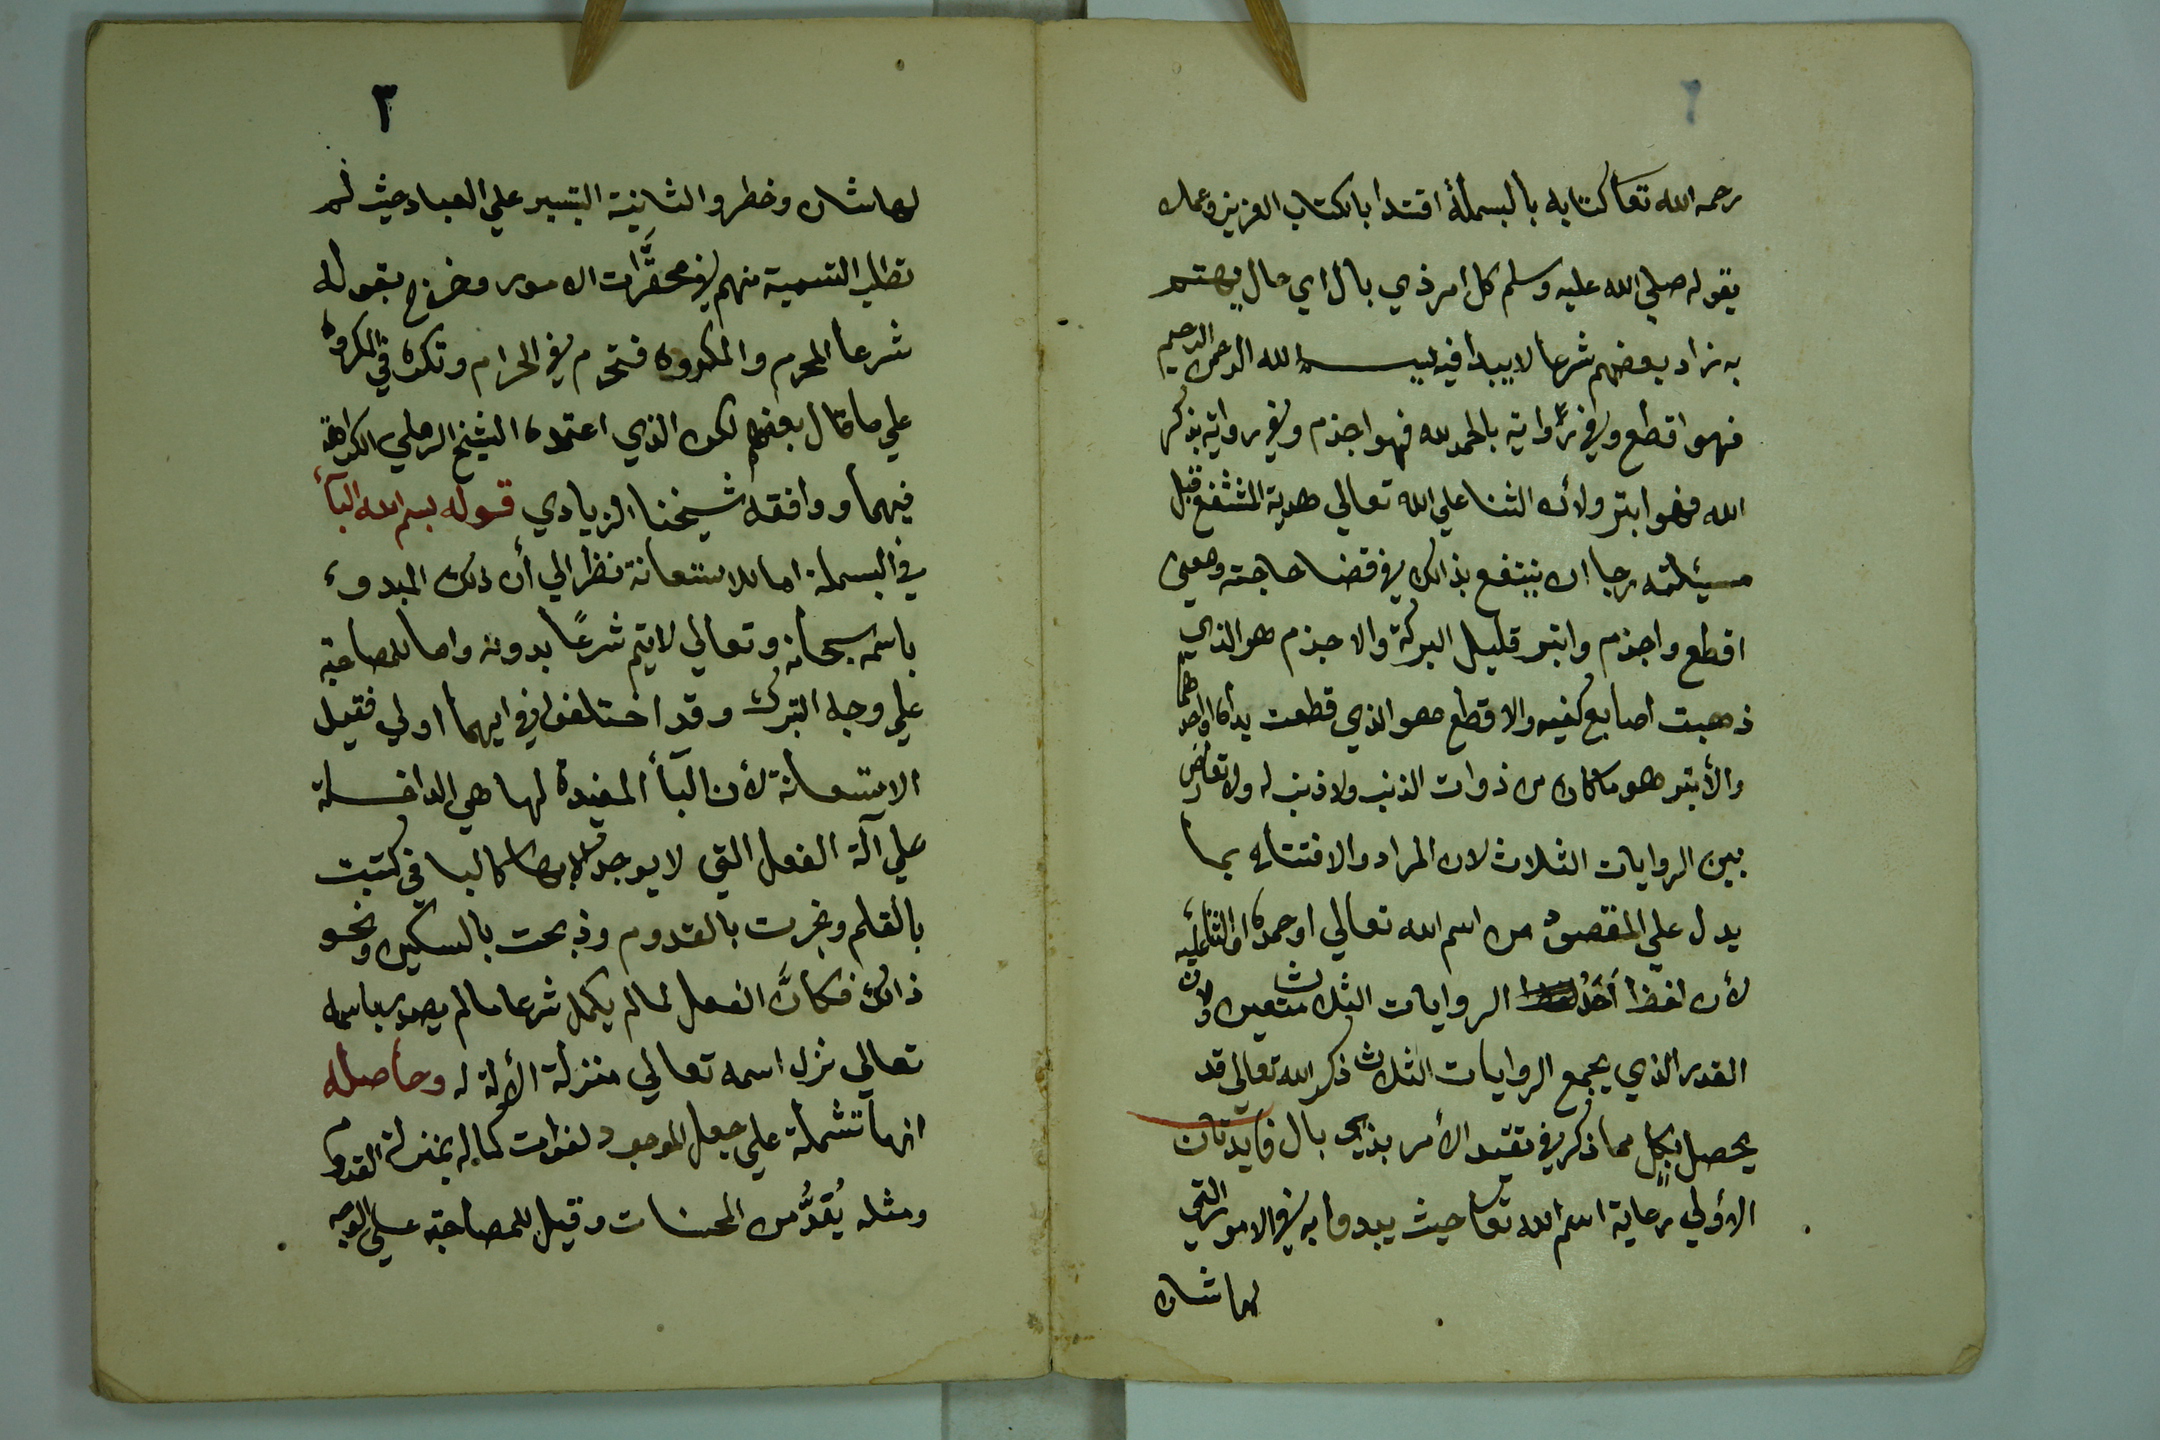 ٢
رحمه الله تعا كتابه بالبسملة اقتدا بالكتاب العزيز وعملا
بقوله صلي الله عليه وسلم كل امر ذي بال اي حال يهتم
به زاد بعضهم شرعا لا يبدا فيه ببسم الله الرحمن الرحيم
فهو اقطع وفي رواية بالحمد لله فهو اجذم وفي رواية بذكر
الله فهو ابتر ولأن الثنا علي الله تعالي هدية المتشفع قبل
مسيلته رجا ان ينتفع بذالك في قضا حاجته ومعني
اقطع واجذم وابتر قليل البركة والاجذم هو الذي
ذهبت اصابع كفيه والاقطع هو الذي قطعت يداه او احدهما
والأبتر هو ما كان من ذوات الذنب ولا ذنب له ولا تعارض
بين الروايات الثلاث لان المراد والافتتاح بما
يدل علي المقصود من اسم الله تعالي او حمده او الثنا عليه
لأن لفظ أحد الروايات الثلاث متعين ولان
القدر الذي يجمع الروايات الثلاث ذكر الله تعالي قد
يحصل بكل مما ذكر في تقيد الأمر بذي بال فايدتان
الأولي رعاية اسم الله تعا حيث يبدوا به في الامور التي
لها شان
٣
لها شان وخطر والثانية التيسير علي العباد حيث لم
تطلب التسمية منهم في محقَّرات الامور وخرج بقوله
شرعا المحرم والمكروه فتحرم في الحرام وتكره في المكروه
علي ما قال بعضهم لكن الذي اعتمده الشيخ الرملي الكراهة
فيهما ووافقه شيخنا الزيادي قوله بسم الله البأ
في البسملة اما للاستعانة نظرا الي أن ذلك المبدوء
باسمه سبحانه وتعالي لا يتم شرعًا بدونه واما للمصاحبة
علي وجه التبرك وقد اختلفوا في ايهما اولي فقيل
الاستعانة لأن البأ المفيدة لها هي الداخلة
علي آلة الفعل التي لا يوجد الا بها كالبا في كتبت
بالقلم ونجرت بالقدوم وذبحت بالسكين ونحو
ذالك فكأنَّ الفعل لما لم يكمل شرعا ما لم يصدر باسمه
تعالي نزل اسمه تعالي منزلة الألة له وحاصله
انها تشملة علي جعل الموجود لفوات كماله بمنزلة القدوم
ومثله يُعَدُّ من المحسنات وقيل للمصاحبة علي الوجه